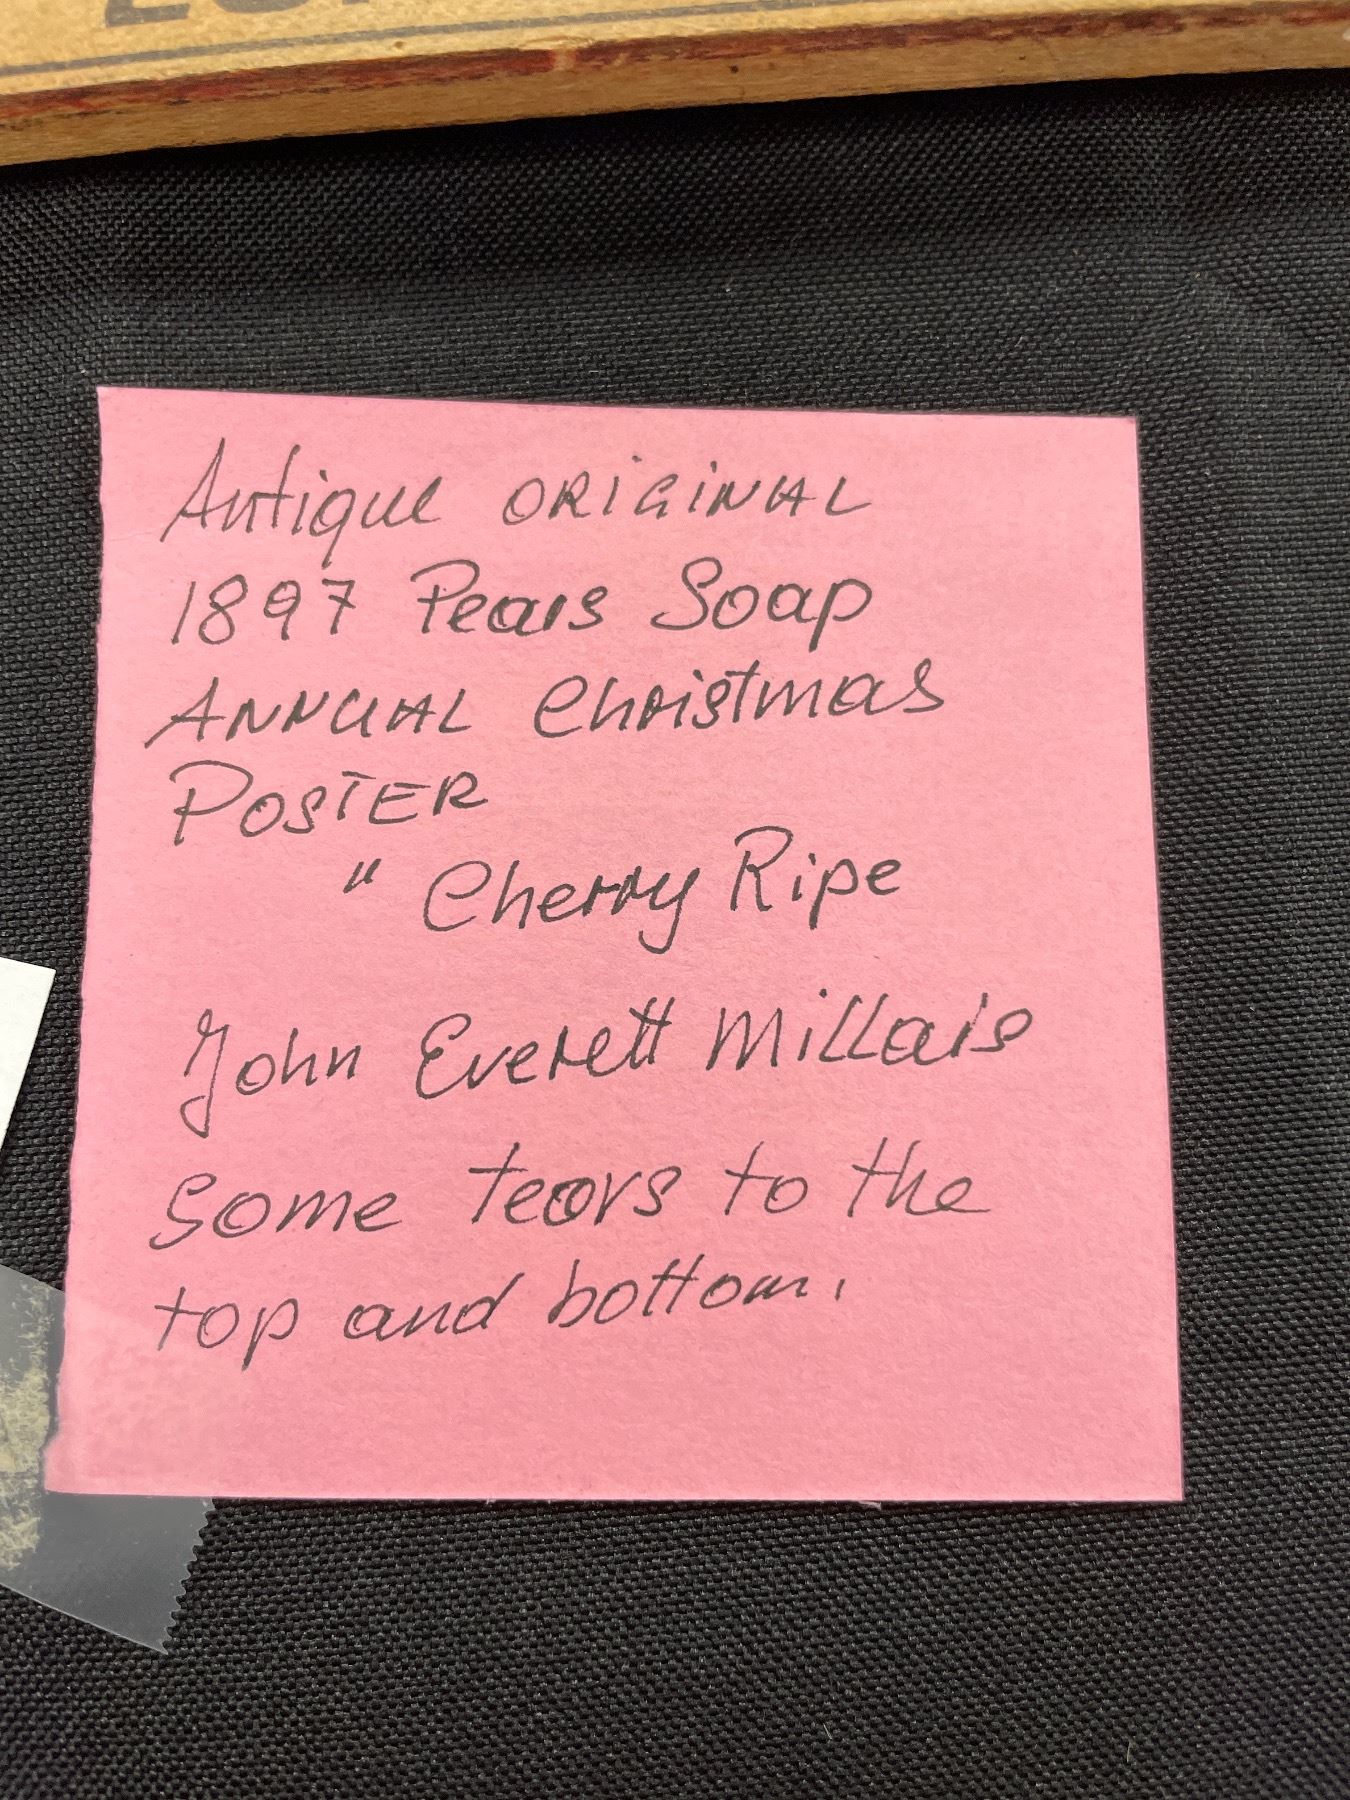 Antique ORIGINAL
1897 Pears Soap
ANNUAL Christmas
POSTER
" Cherry Ripe
John Everett Millais
Some tears to the
top and bottom.